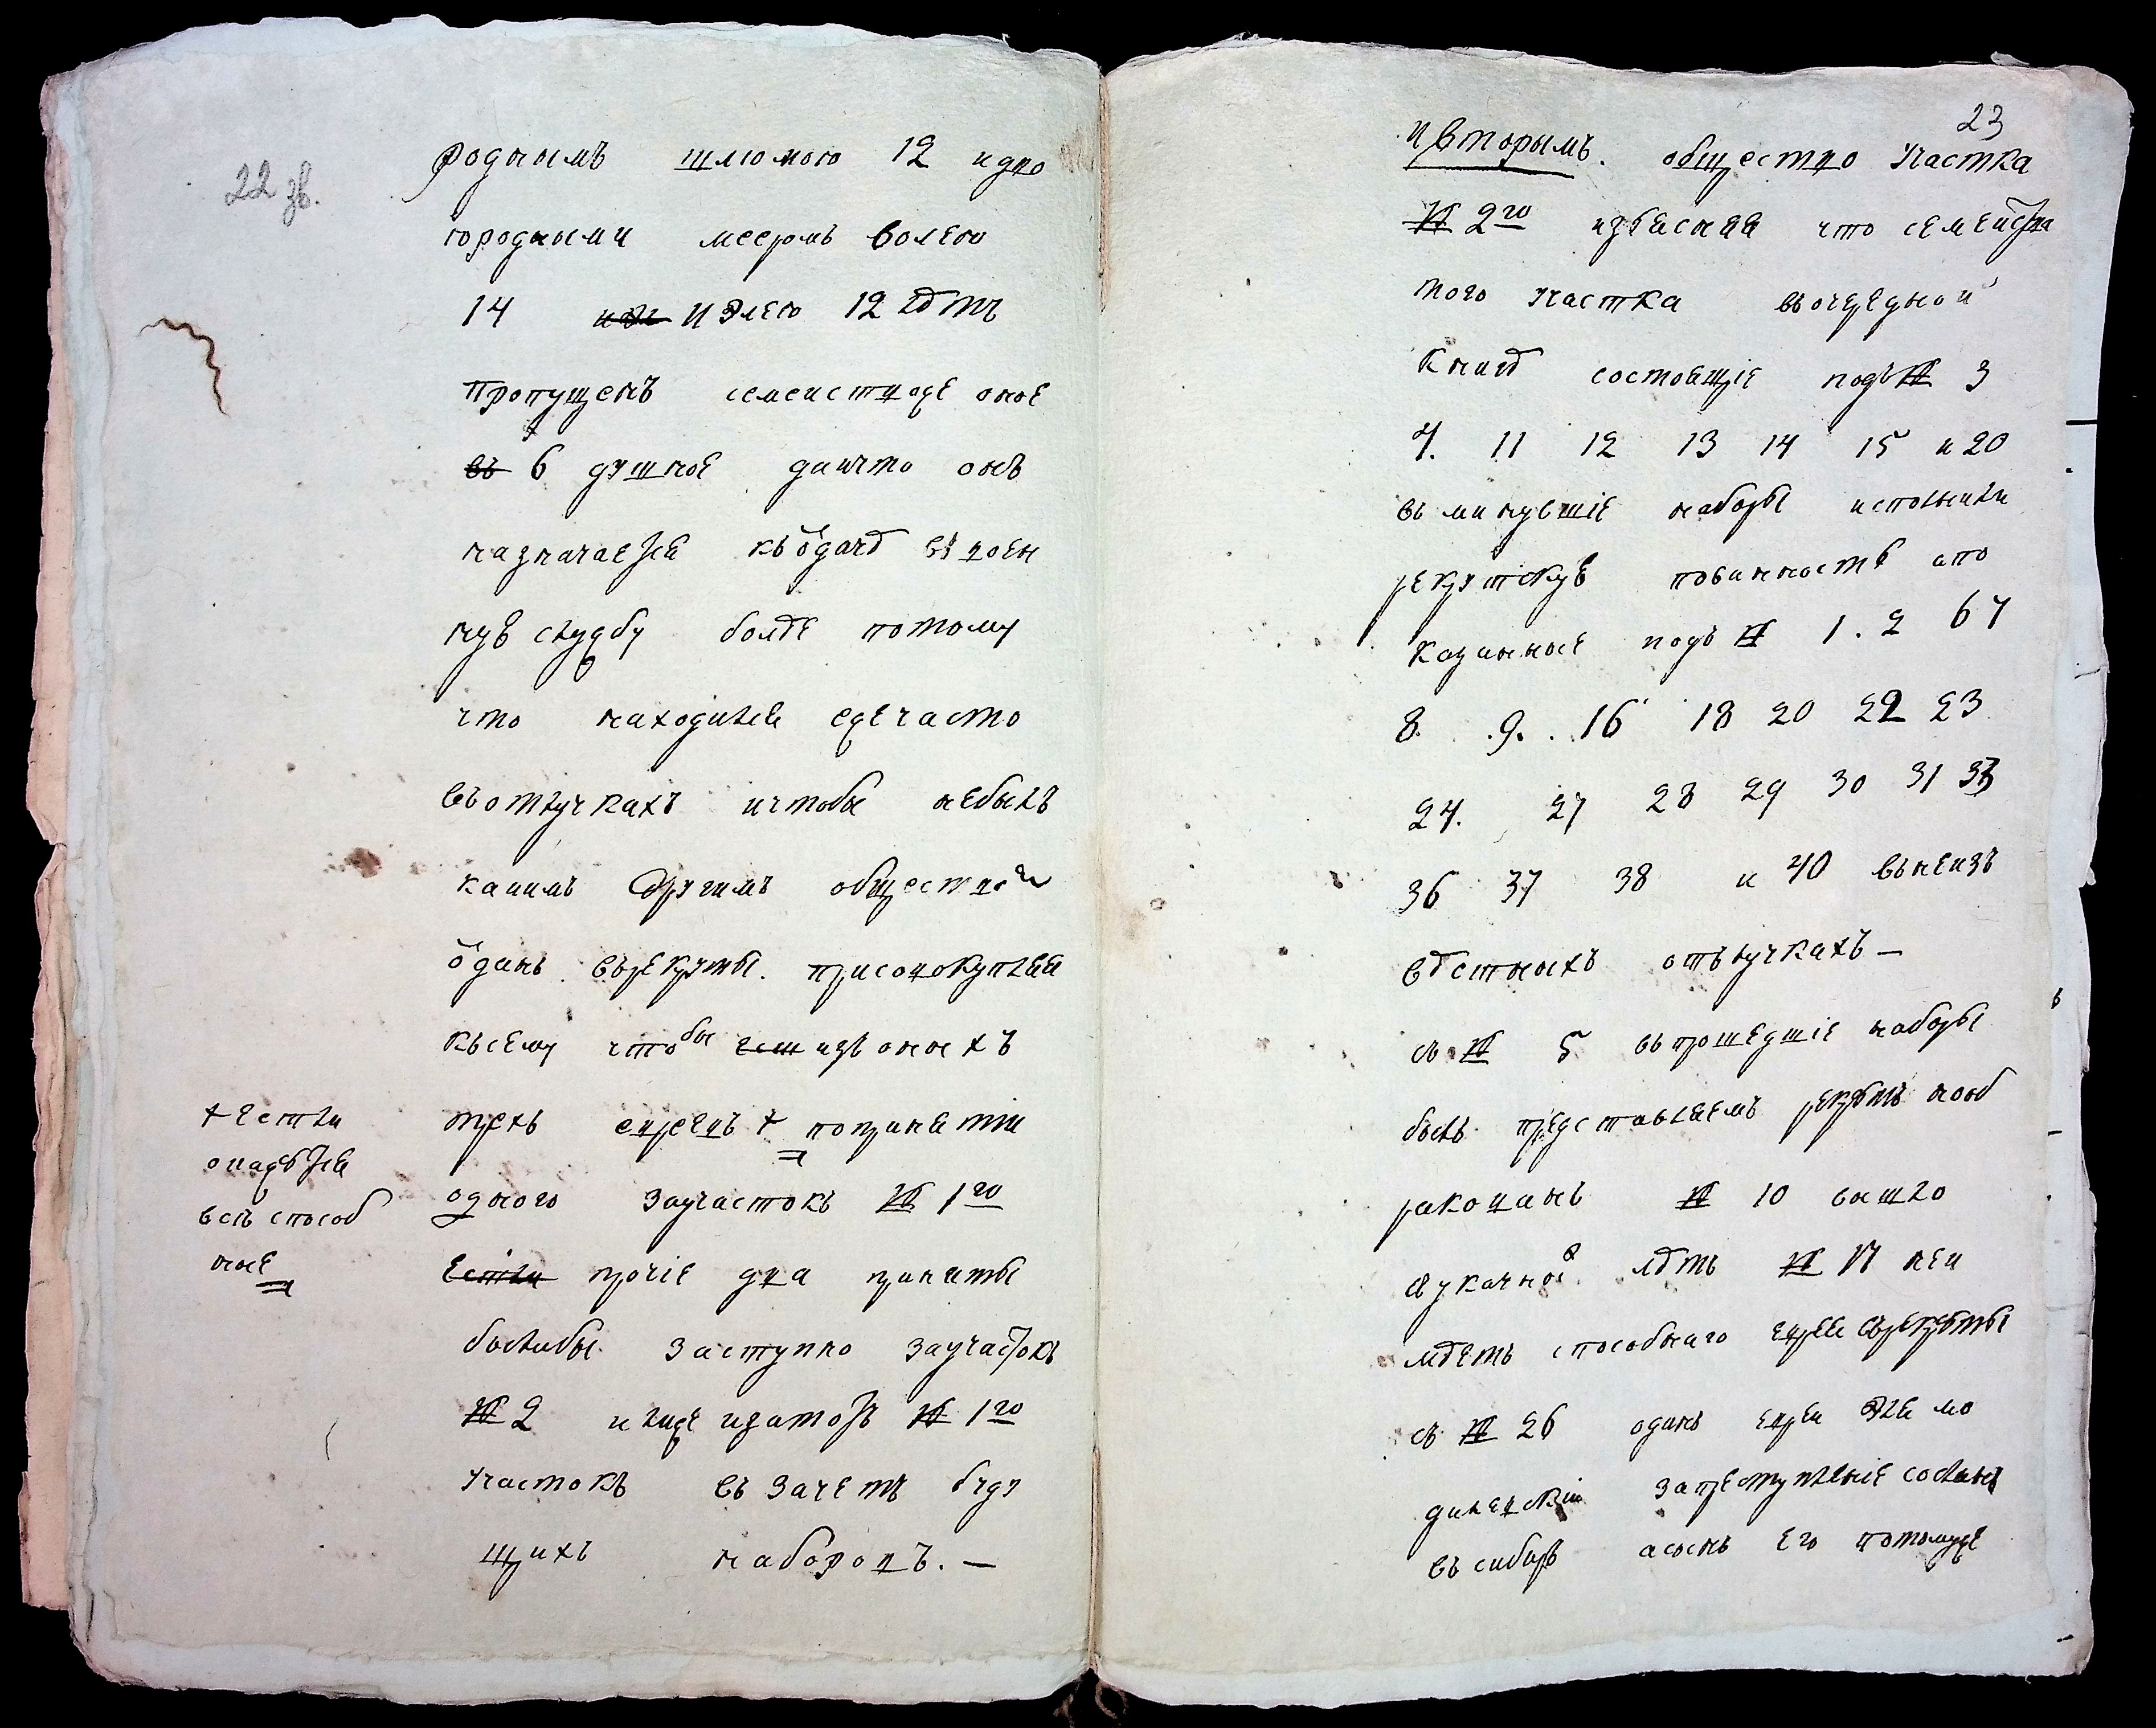 22 зв.
роднымъ шлюмою 12 и дво
юродными меером волею
14 и Элею 12 лѣтъ
пропущенъ семействоже оное
въ 6 душное да и что онъ
назначается къ о̆дачѣ въ воен
ную службу болѣе потому
что находился еже часто
въ отлучкахъ и чтобы небылъ
каимъ другимъ обществом
о̆данъ въ рекруты. присовокупляя
къ сему чтобы изъ оныхъ
трехъ евреевъ + по принятіи
+ если
окажутся
всѣ способ
ные
одного за участокъ № 1го
если прочіе два приняты
былибы заступно за участокъ
№ 2 и № 1го
участокъ въ зачетъ буду
щихъ наборовъ. —
23
и вторымъ. общество участка
№ 2го изъясняя что семейства
того участка въ очередной
книгѣ состоящіе подъ № 3
4. 11 12 13 14 15 и 20
въ минувшіе наборы исполнили
рекрутскую повинность а по
казанные подъ № 1. 2 6 7
8. 9. 16 18 20 22 23
24. 27 28 29 30 31 33
36 37 38 и 40 в неиз
вѣстныхъ отълучкахъ —
съ № 5 въ прошедшіе наборы
былъ представляемъ рекрутъ но об
ракованъ № 10 вышло
лѣтъ № 17 неи
мѣетъ способнаго еврея въ рекруты
съ № 26 одинъ еврей Эля мо
за преступленіе сосланъ
въ сибирь а сынъ его потомуже